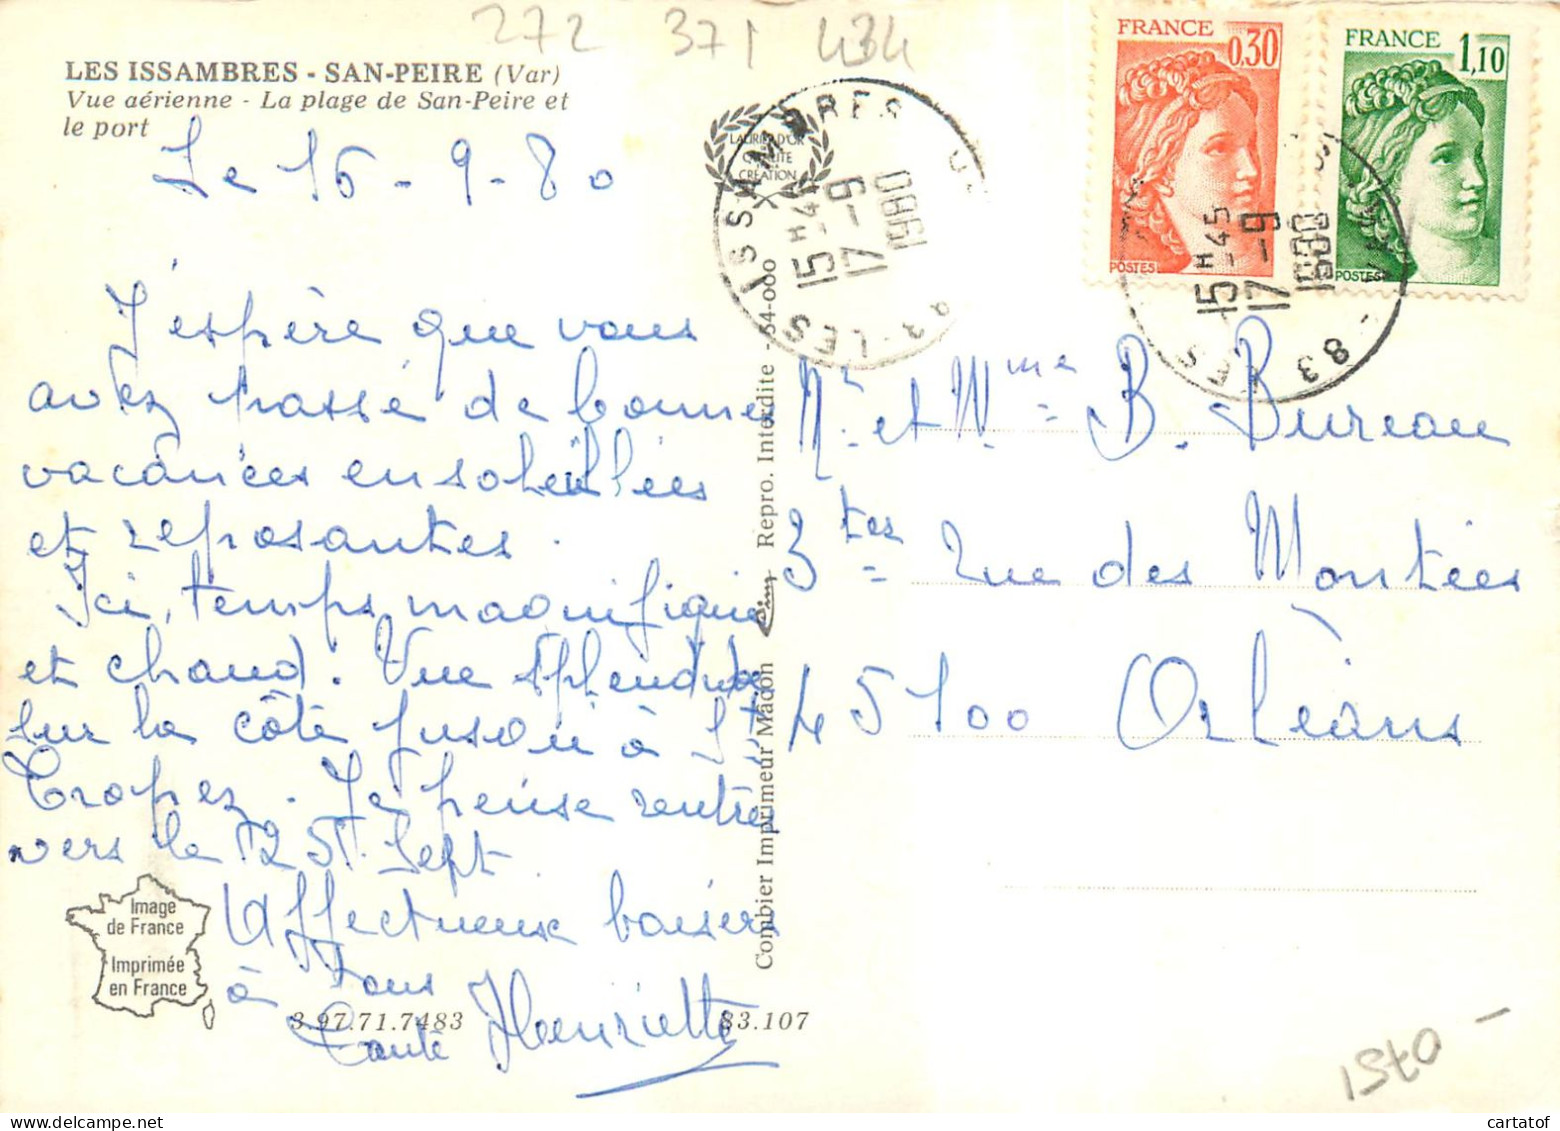 272 371 434
LES ISSAMBRES - SAN-PEIRE (Var)
Vue aérienne - La plage de San-Peire et
le port
Le 16 - 9 - 80
J'espère que vous
avez passé de bonnes
vacances ensoleillées
et reposantes.
Ici, temps magnifique
et chaud. Vue splendide
sur la côte jusqu'à St
Tropez. Je pense rentrer
vers le 25 Sept.
Affectueux baisers
à Tous
Tante Henriette
Image
de France
Imprimée
en France
3.97.71.7483
83.107
Combier Imprimeur Mâcon
Repro. Interdite - 64-000
LAURIER D'OR
QUALITE
CREATION
83 - LES ISSAMBRES
15 H 45
17 - 9
1980
FRANCE
0,30
POSTES
FRANCE
1,10
POSTES
83 - LES
15 H 45
17 - 9
1980
Mr et Mme B. Bureau
3 ter rue des Montées
45100 Orléans
cartatof